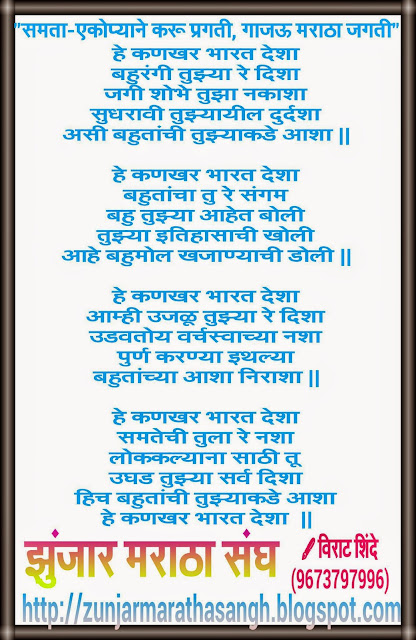 "समता-एकोप्याने करू प्रगती, गाजऊ मराठा जगती"
हे कणखर भारत देशा
बहुरंगी तुझ्या रे दिशा
जगी शोभे तुझा नकाशा
सुधरावी तुझ्यायील दुर्दशा
असी बहुतांची तुझ्याकडे आशा ||
हे कणखर भारत देशा
बहुतांचा तु रे संगम
बहु तुझ्या आहेत बोली
तुझ्या इतिहासाची खोली
आहे बहुमोल खजाण्याची डोली ||
हे कणखर भारत देशा
आम्ही उजळू तुझ्या रे दिशा
उडवतोय वर्चस्वाच्या नशा
पुर्ण करण्या इथल्या
बहुतांच्या आशा निराशा ||
हे कणखर भारत देशा
समतेची तुला रे नशा
लोककल्याना साठी तू
उघड तुझ्या सर्व दिशा
हिच बहुतांची तुझ्याकडे आशा
हे कणखर भारत देशा ||
झुंजार मराठा संघ
विराट शिंदे
(9673797996)
http://zunjarmarathasangh.blogspot.com